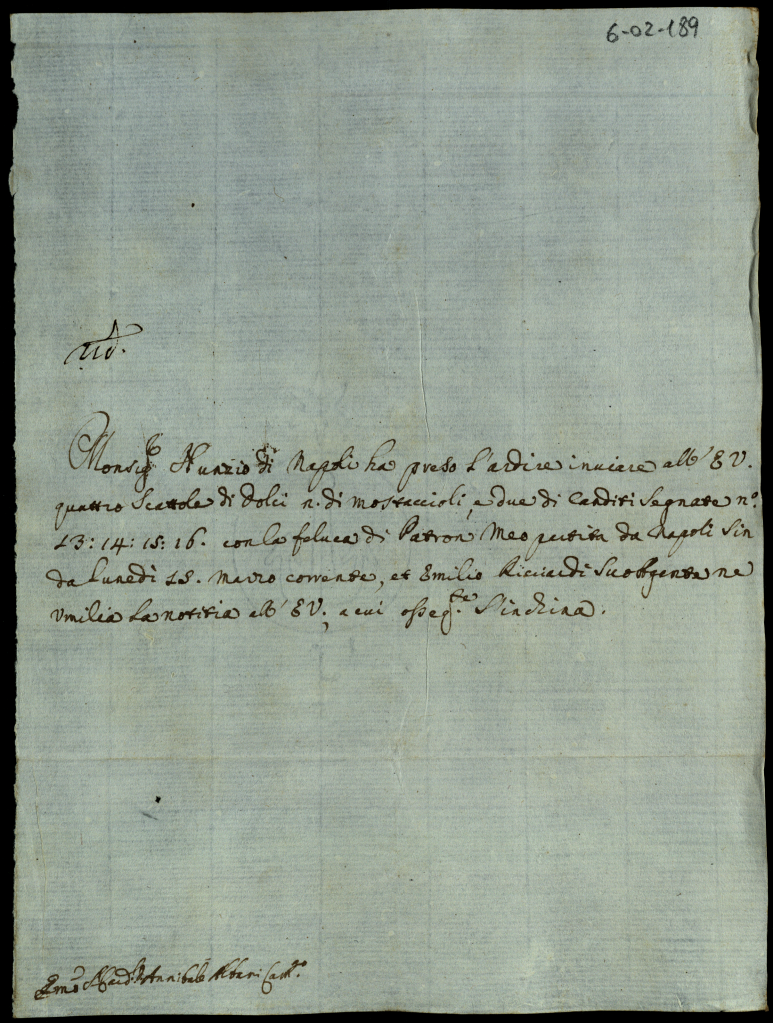 6-02-189
Monsig.r Nunzio di Napoli ha preso l'ardire inviare all' E V.
quattro Scattole di dolci n. di mostaccioli, e due di Canditi Segnate n.o
13: 14: 15: 16. con la feluca di Patron Meo partita da Napoli Sin
da Lunedì 15. marzo corrente, et Emilio Ricciardi Suo Agente ne
Umilia la notitia all' E V., a cui osseq.te S'inchina.
Em.o S. Card. Annibale Albani Cam.o